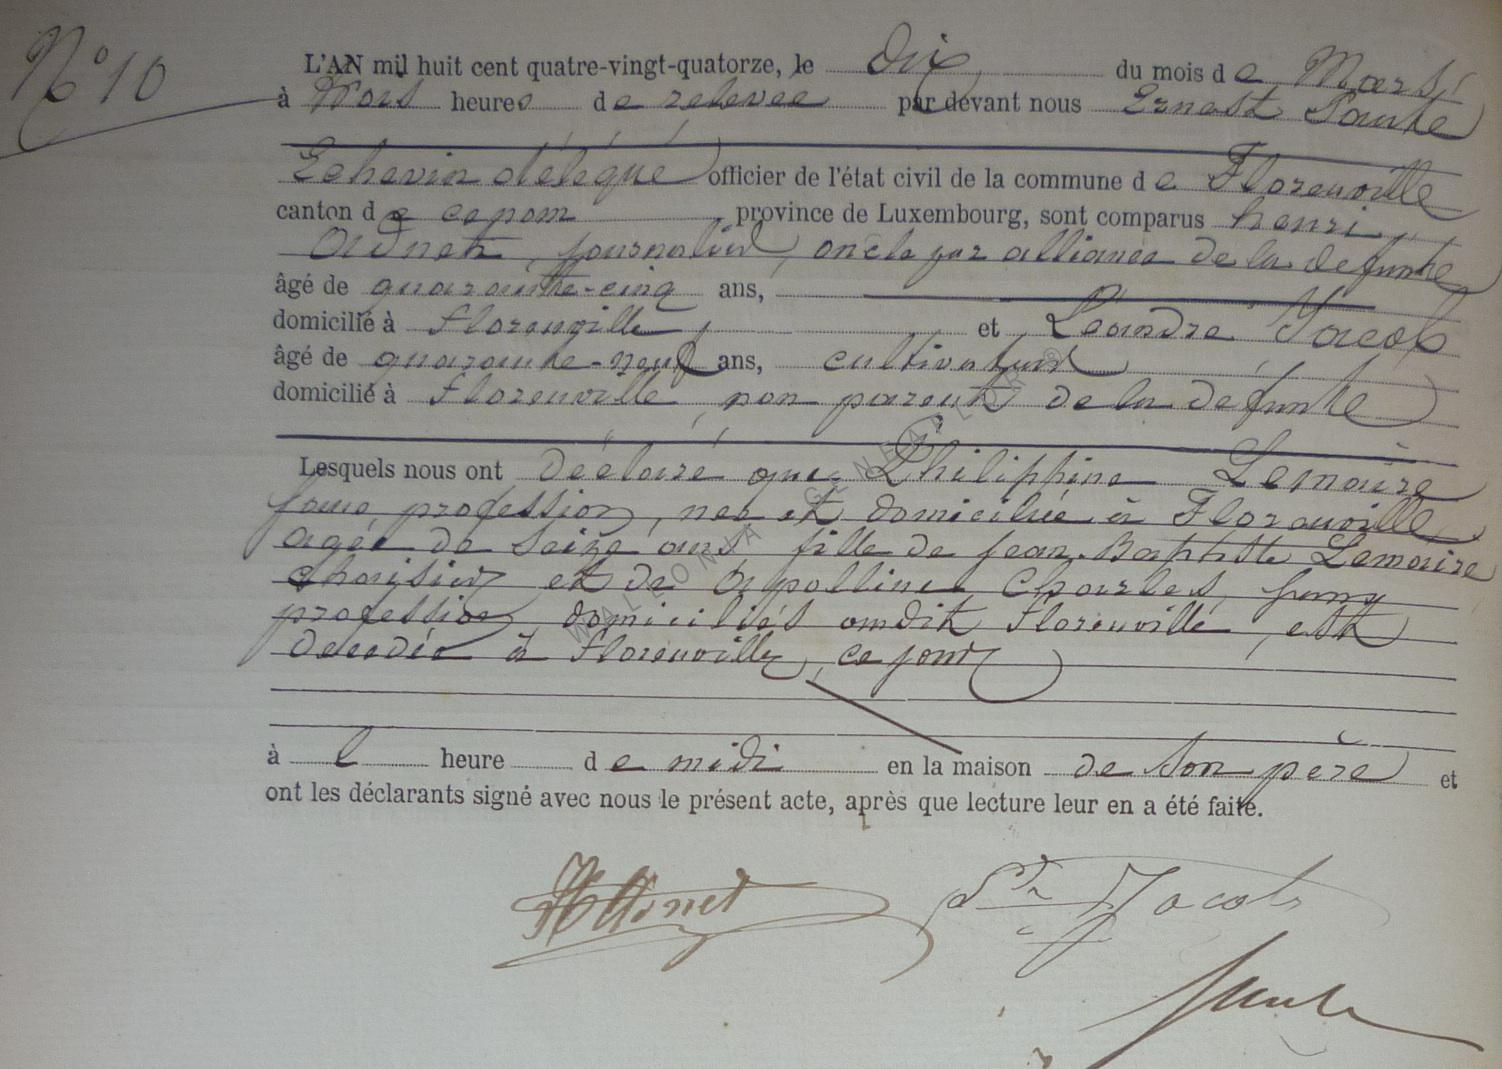 N° 10
L'AN mil huit cent quatre-vingt-quatorze, le dix du mois de Mars,
à trois heures de relevée par devant nous Ernest Sante
Echevin délégué officier de l'état civil de la commune de Florenville
canton de ce nom, province de Luxembourg, sont comparus henri
journalier, oncle par alliance de la défunte
âgé de quarante-cinq ans,
domicilié à Florenville, et Léandre Jacob
âgé de quarante-neuf ans, cultivateur
domicilié à Florenville, non parent de la défunte
Lesquels nous ont déclaré que Philippine Lemaire
sans profession, née et domiciliée à Florenville
agée de seize ans fille de jean-Baptiste Lemaire
et de Apolline Charles, sans
profession domiciliés audit Florenville, est
décédée à Florenville, ce jour
à l heure de midi en la maison de son père et
ont les déclarants signé avec nous le présent acte, après que lecture leur en a été faite.
Jacob
WALLONIA GENEALOR